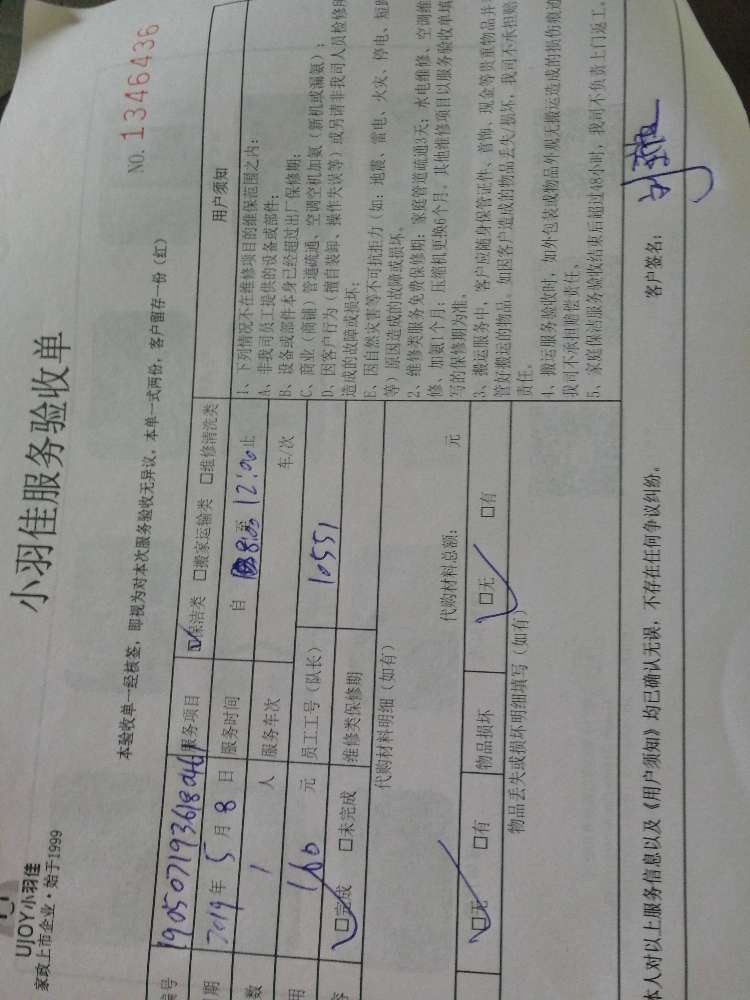 UJOY小羽佳
家政上市企业·始于1999
小羽佳服务验收单
NO. 1346436
本验收单一经核签，即视为对本次服务验收无异议，本单一式两份，客户留存一份（红）
编号 服务项目 保洁类 □搬家运输类 □维修清洗类
期 2019年5月8日 服务时间 自 8:03 至 12:06 止
数 1 人 服务车次 车/次
用 160 元 员工工号（队长） 10551
容 □完成 □未完成 维修类保修期
代购材料明细（如有） 代购材料总额： 元
□无 □有 物品损坏 □无 □有
物品丢失或损坏明细填写（如有）
用户须知
1、下列情况不在维修项目的维保范围之内：
A、非我司员工提供的设备或部件；
B、设备或部件本身已经超过出厂保修期；
C、商业（商铺）管道疏通、空调空机加氨（新机或漏氨）；
D、因客户行为（擅自装卸、操作失误等）或另请非我司人员检修所
造成的故障或损坏；
E、因自然灾害等不可抗拒力（如：地震、雷电、火灾、停电、短路
等）原因造成的故障或损坏。
2、维修类服务免费保修期：家庭管道疏通3天；水电维修、空调维
修、加氨1个月；压缩机更换6个月，其他维修项目以服务验收单填
写的保修期为准。
3、搬运服务中，客户应随身保管证件、首饰、现金等贵重物品并
管好搬运的物品。如因客户造成的物品丢失/损坏，我司不承担赔
责任。
4、搬运服务验收时，如外包装或物品外观无搬运造成的损伤痕迹
我司不承担赔偿责任。
5、家庭保洁服务验收结束后超过48小时，我司不负责上门返工。
本人对以上服务信息以及《用户须知》均已确认无误，不存在任何争议纠纷。 客户签名：